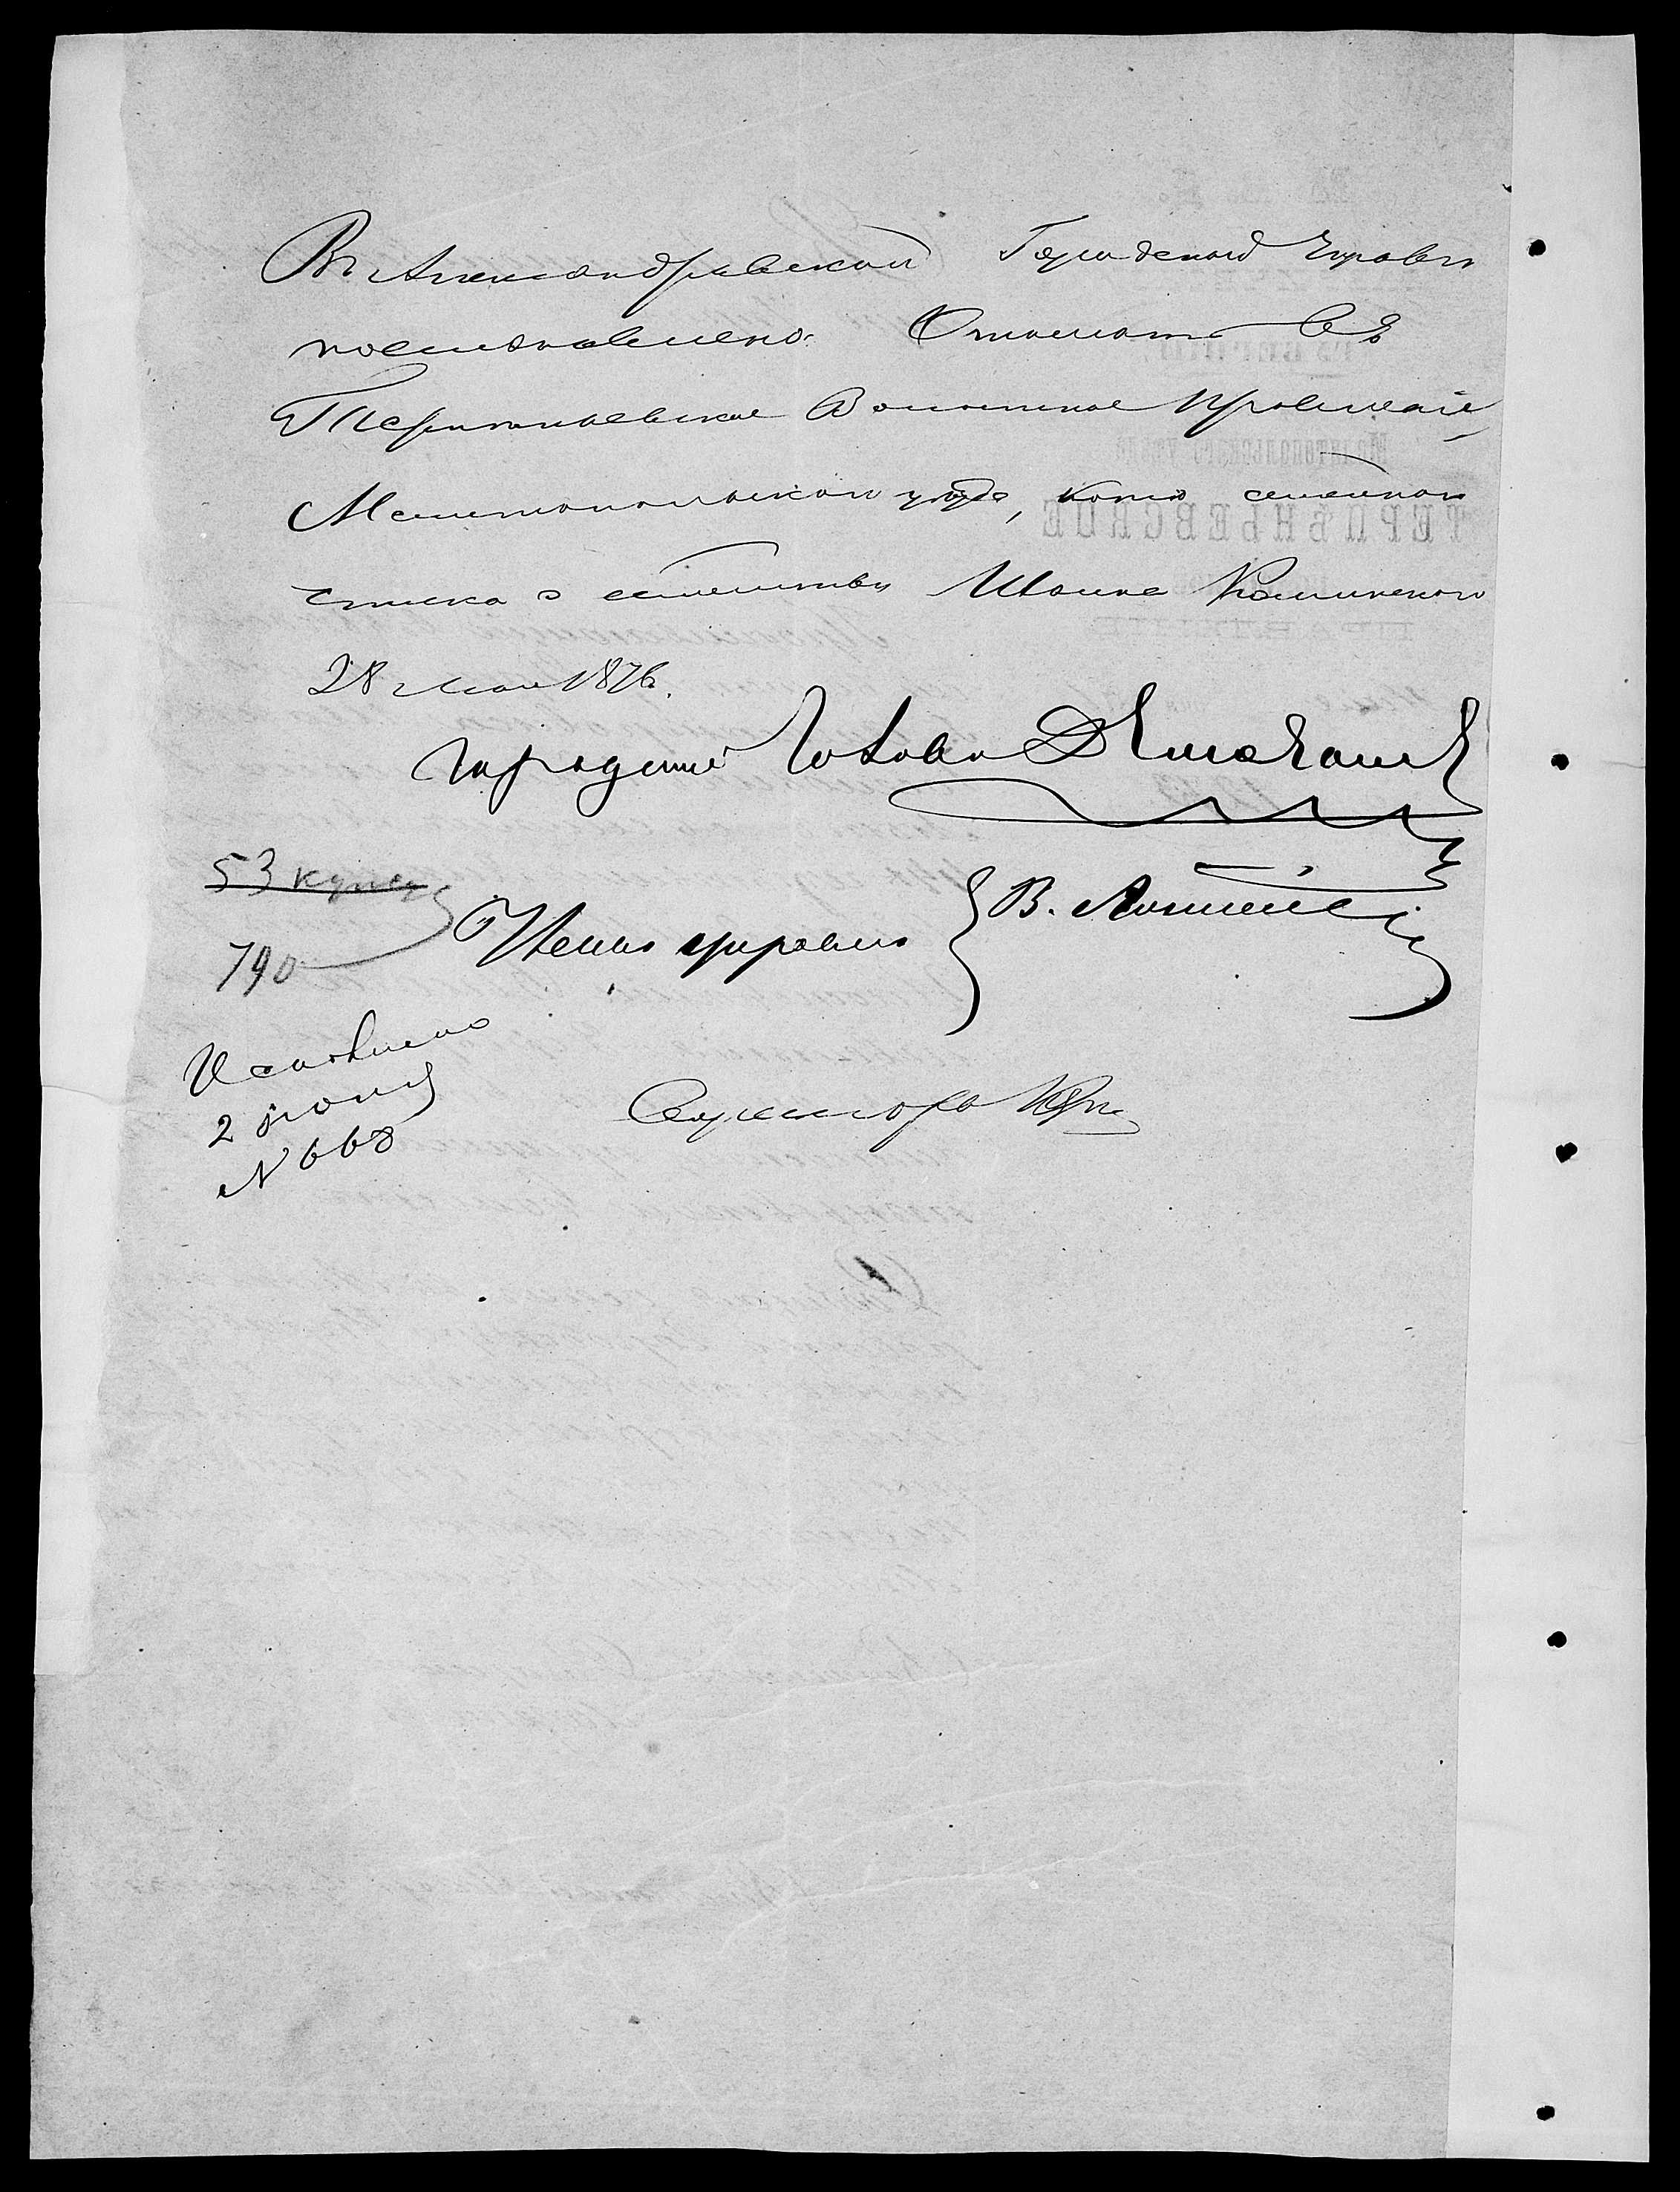 Въ Александровской Городской Управѣ
постановлено: Отослать въ
Терпѣньевское Волостное Правленіе,
Мелитопольскаго уѣзда, копію семейнаго
списка о семействѣ Ивана Калинскаго
28 мая 1876.
Городской Голова
53 купц
790
Члены управы В.
Исполнено
2 іюня
№ 668
Секретарь